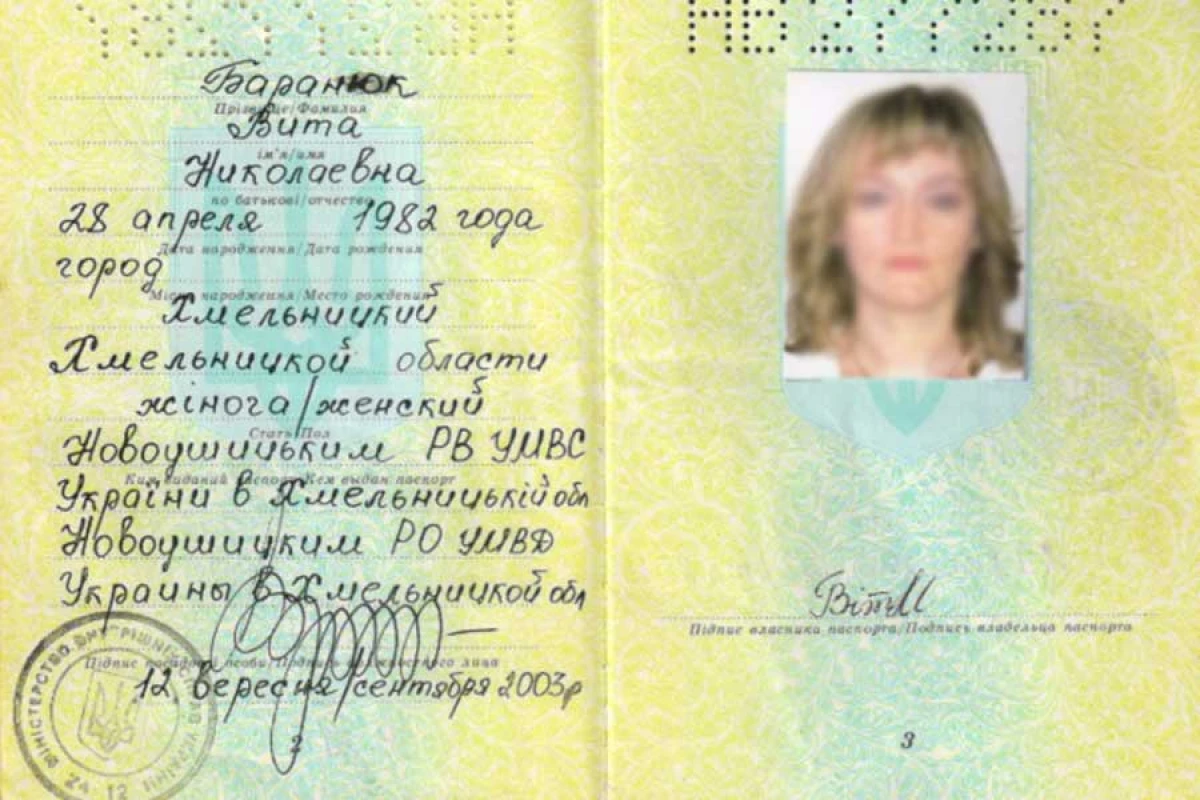 Баранюк
Прізвище/Фамилия
Вита
ім'я/имя
Николаевна
по батькові/отчество
28 апреля 1982 года
Дата народження/Дата рождения
город
Місце народження/Место рождения
Хмельницкий
Хмельницкой области
жіноча/женский
Стать/Пол
Новоушицьким РВ УМВС
Ким виданий паспорт/Кем выдан паспорт
України в Хмельницькій обл
Новоушицким РО УМВД
Украины в Хмельницкой обл
Підпис посадової особи/Подпись должностного лица
12 вересня/сентября 2003р
2
НВ277257
Підпис власника паспорта/Подпись владельца паспорта
3